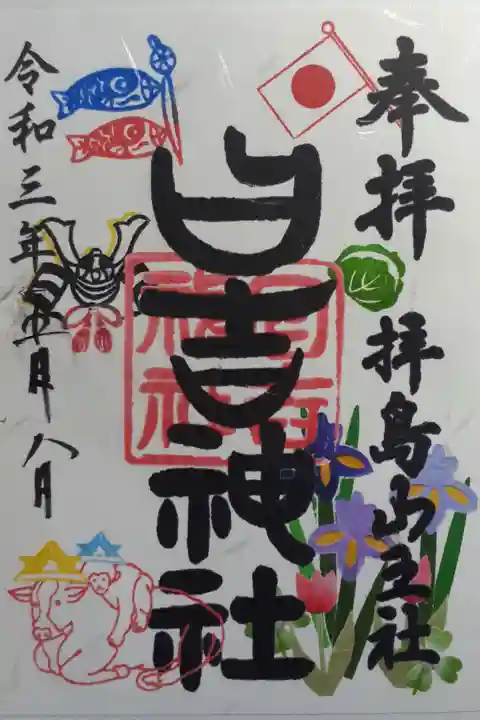 奉拝　拝島山王社
日吉神社
令和三年五月八日